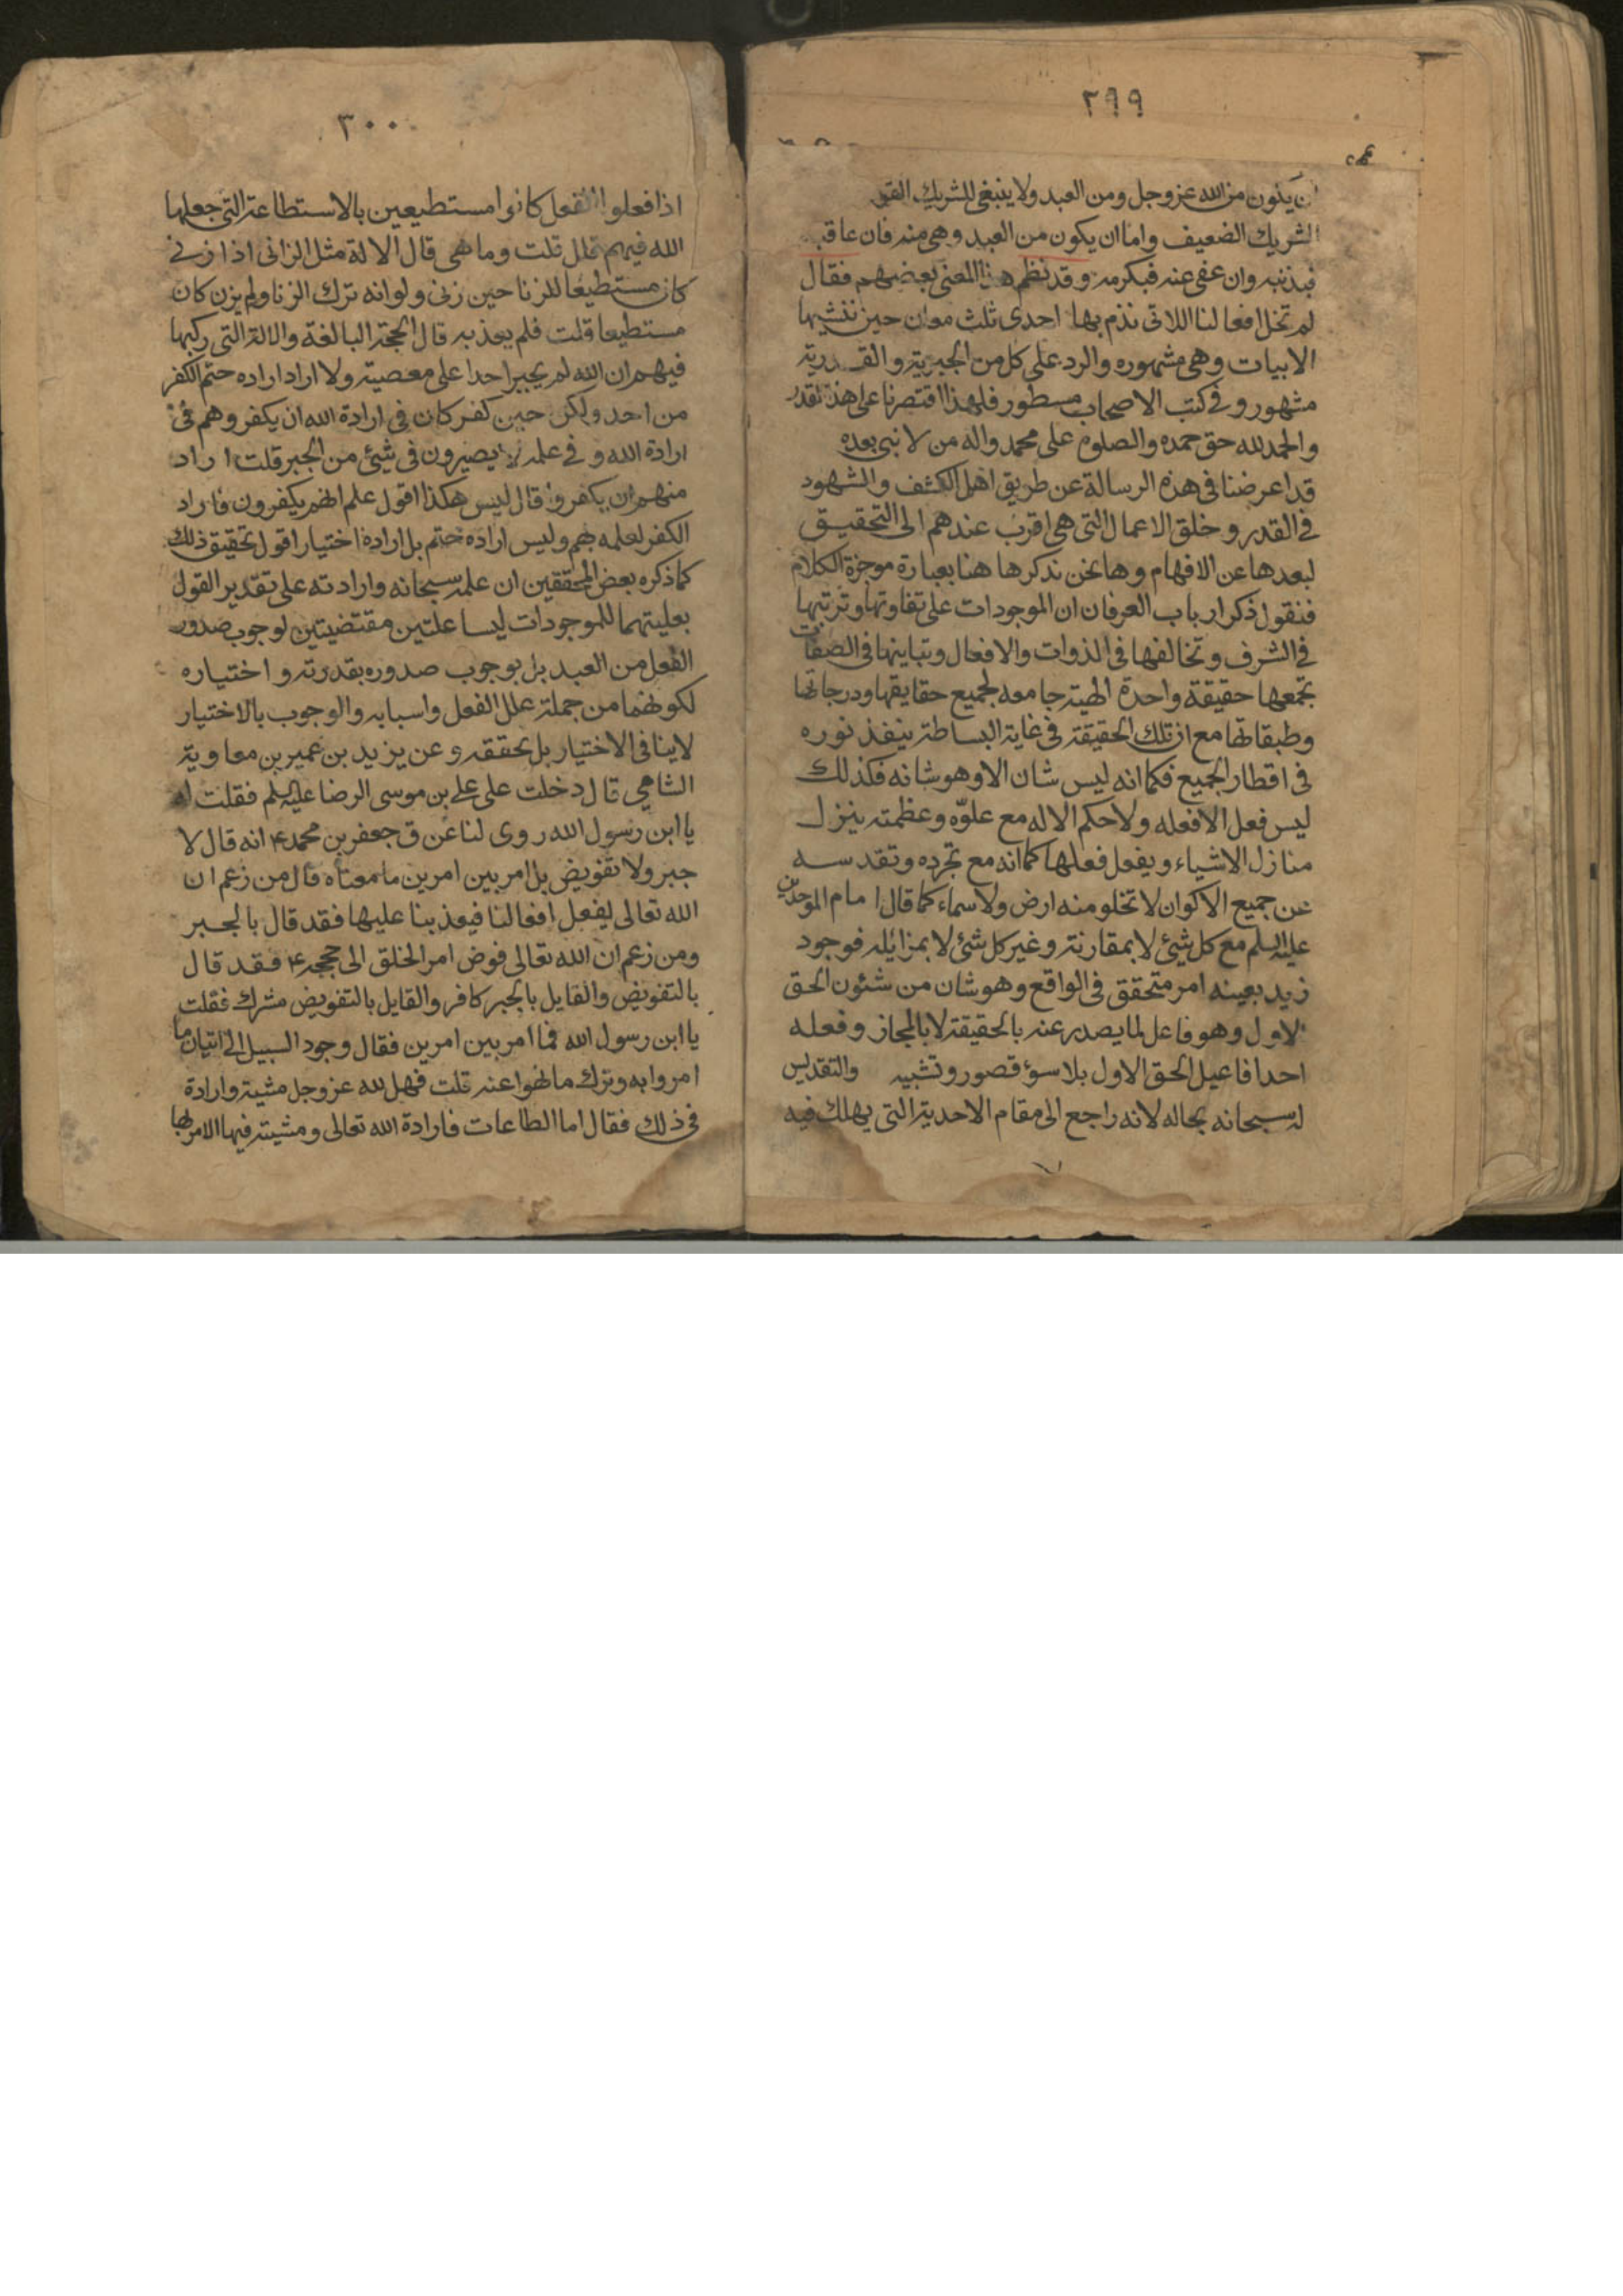 ٢٩٩
يكون من الله عز وجل ومن العبد ولا ينبغي للشريك القوى
الشريك الضعيف واما ان يكون من العبد وهى منه فان عاقبه
فبذنبه وان عفى عنه فبكرمه وقد نظم هذا المعنى بعضهم فقال
لم تخل افعالنا اللاتى نذم بها احدى ثلث معان حين
الابيات وهى مشهوره والرد على كل من الجبرية والقدرية
مشهور وفى كتب الاصحاب مسطور فلهذا اقتصرنا على هذا القدر
والحمد لله حق حمده والصلوة على محمد واله من لا نبى بعده
قد اعرضنا فى هذه الرسالة عن طريق اهل الكشف والشهود
فى القدر وخلق الاعمال التى هى اقرب عندهم الى التحقيق
لبعدها عن الافهام وها نحن نذكرها هنا بعبارة موجزة الكلام
فنقول ذكر ارباب العرفان ان الموجودات على تفاوتها وترتبها
فى الشرف وتخالفها فى الذوات والافعال وتباينها فى الصفات
تجمعها حقيقة واحدة الهية جامعه لجميع حقايقها ودرجاتها
وطبقاتها مع ان تلك الحقيقة فى غاية البساطة ينفذ نوره
فى اقطار الجميع فكما انه ليس شان الا وهو شانه فكذلك
ليس فعل الا فعله ولا حكم الا له مع علوّه وعظمته ينزل
منازل الاشياء ويفعل فعلها كما انه مع تجرده وتقدسه
عن جميع الاكوان لا تخلو منه ارض ولا سماء كما قال امام الموحدين
عليه السلم مع كل شئ لا بمقارنة وغير كل شئ لا بمزايله فوجود
زيد بعينه امر متحقق فى الواقع وهو شان من شئون الحق
الاول وهو فاعل لما يصدر عنه بالحقيقة لا بالمجاز وفعله
احد افاعيل الحق الاول بلا سؤ قصور وتشبيه والتقديس
له سبحانه بحاله لانه راجع الى مقام الاحدية التى يهلك فيه
٣٠٠
اذا فعلوا الفعل كانوا مستطيعين بالاستطاعة التى جعلها
الله فيهم قال قلت وما هى قال الالة مثل الزانى اذا زنى
كان مستطيعا للزنا حين زنى ولو انه ترك الزنا ولم يزن كان
مستطيعا قلت فلم يعذبه قال الحجة البالغة والالة التى ركبها
فيهم ان الله لم يجبر احدا على معصيته ولا اراد اراده حتم الكفر
من احد ولكن حين كفر كان فى ارادة الله ان يكفر وهم فى
ارادة الله وفى علمه لا يصيرون فى شئ من الجبر قلت اراد
منهم ان يكفروا قال ليس هكذا اقول علم انهم يكفرون فاراد
الكفر لعلمه بهم وليس ارادة حتم بل ارادة اختيار اقول تحقيق ذلك
كما ذكره بعض المحققين ان علمه سبحانه وارادته على تقدير القول
بعليتهما للموجودات ليسا علتين مقتضيتين لوجوب صدور
الفعل من العبد بل بوجوب صدوره بقدرته واختياره
لكونهما من جملة علل الفعل واسبابه والوجوب بالاختيار
لا ينافى الاختيار بل يحققه وعن يزيد بن عمير بن معاوية
الشامى قال دخلت على على بن موسى الرضا عليه السلم فقلت له
يا ابن رسول الله روى لنا عن ق جعفر بن محمد ع انه قال لا
جبر ولا تفويض بل امر بين امرين ما معناه قال من زعم ان
الله تعالى يفعل افعالنا فيعذبنا عليها فقد قال بالجبر
ومن زعم ان الله تعالى فوض امر الخلق الى حججه ع فقد قال
بالتفويض والقايل بالجبر كافر والقايل بالتفويض مشرك فقلت
يا ابن رسول الله فما امر بين امرين فقال وجود السبيل الى اتيان ما
امروا به وترك ما نهوا عنه قلت فهل لله عز وجل مشية وارادة
فى ذلك فقال اما الطاعات فارادة الله تعالى ومشيته فيها الامر بها